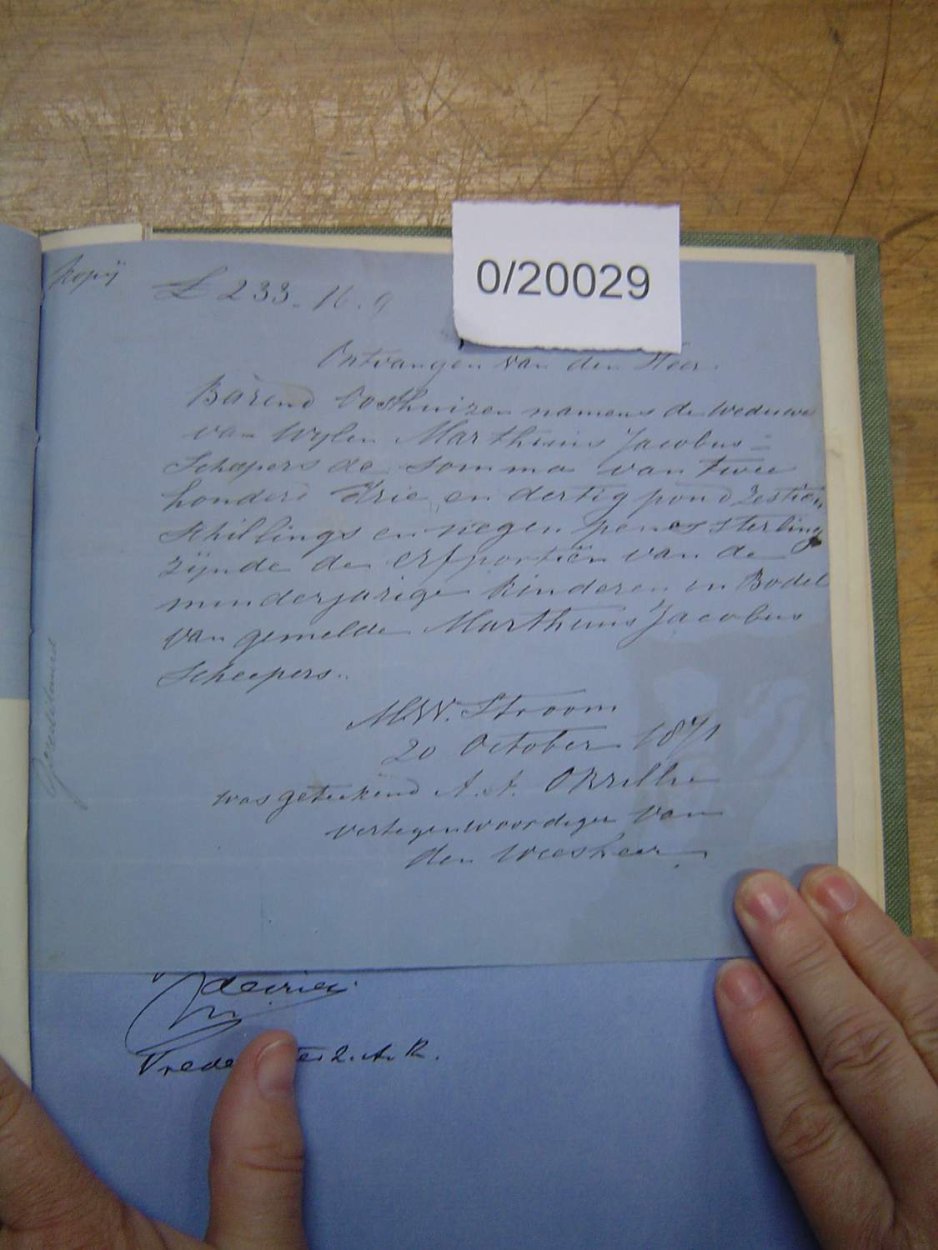 0/20029
Kopij
£ 233.16.9
Ontvangen van den Heer
Barend Oosthuizen namens de Weduwe
van Wylen Marthinus Jacobus
Scheepers de somma van twee
honderd drie en dertig pond Zestien
schillings en negen pence sterling
zijnde de erfportien van de
minderjarige kinderen in Bodel
van gemelde Marthinus Jacobus
Scheepers.
M.W. Stroom
20 October 1871
was getekend A.J.
vertegenwoordiger van
den Weesheer
Vrede